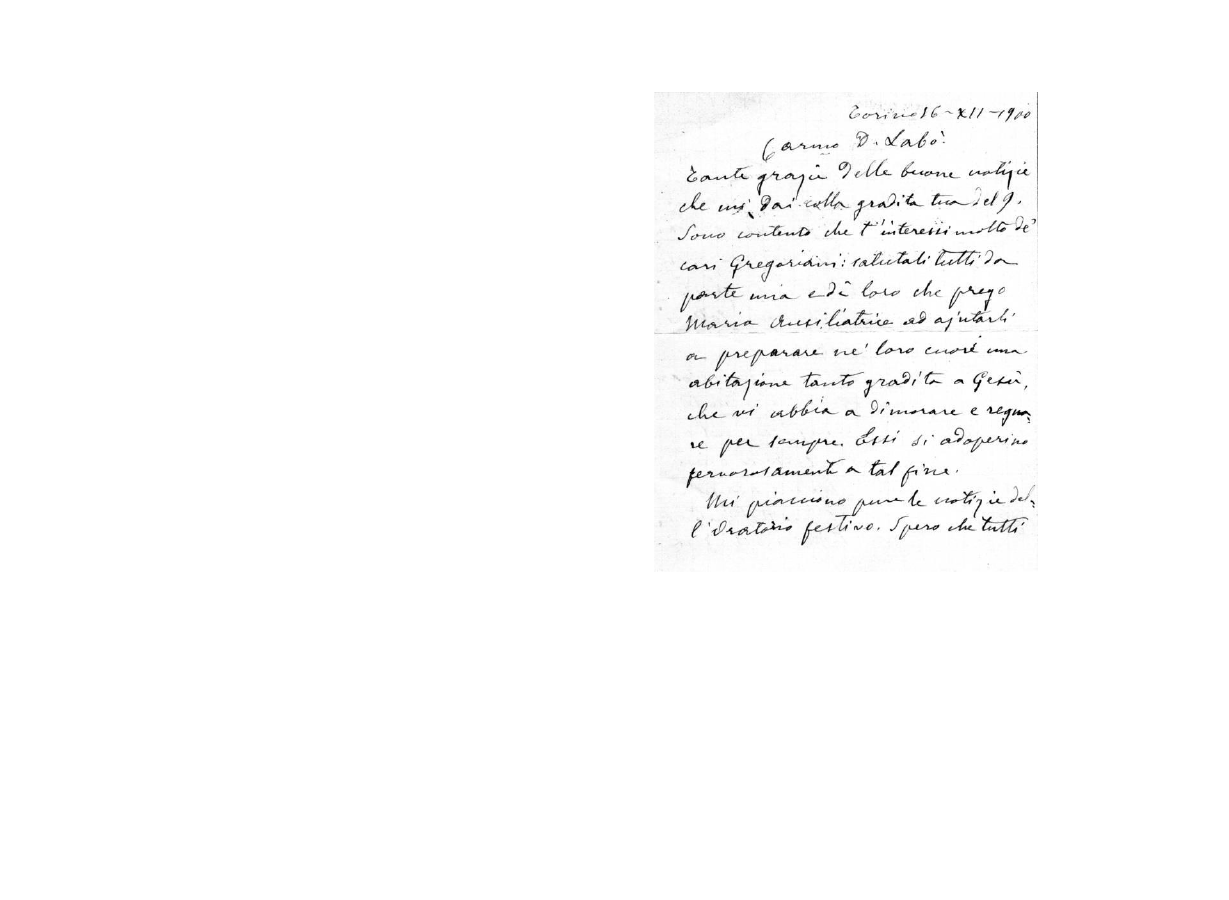 Torino 16-XII-1900
Carmo D. Labò.
Tante grazie delle buone notizie
che mi dai colla gradita tua del 9.
Sono contento che t'interessi molto de'
cari Gregoriani: salutali tutti da
parte mia e dì loro che prego
Maria Ausiliatrice ad ajutarli
a preparare ne' loro cuori una
abitazione tanto gradita a Gesù,
che vi abbia a dimorare e regna-
re per sempre. Essi si adoperino
fervorosamente a tal fine.
Mi piacciono pure le notizie del-
l'Oratorio festivo. Spero che tutti